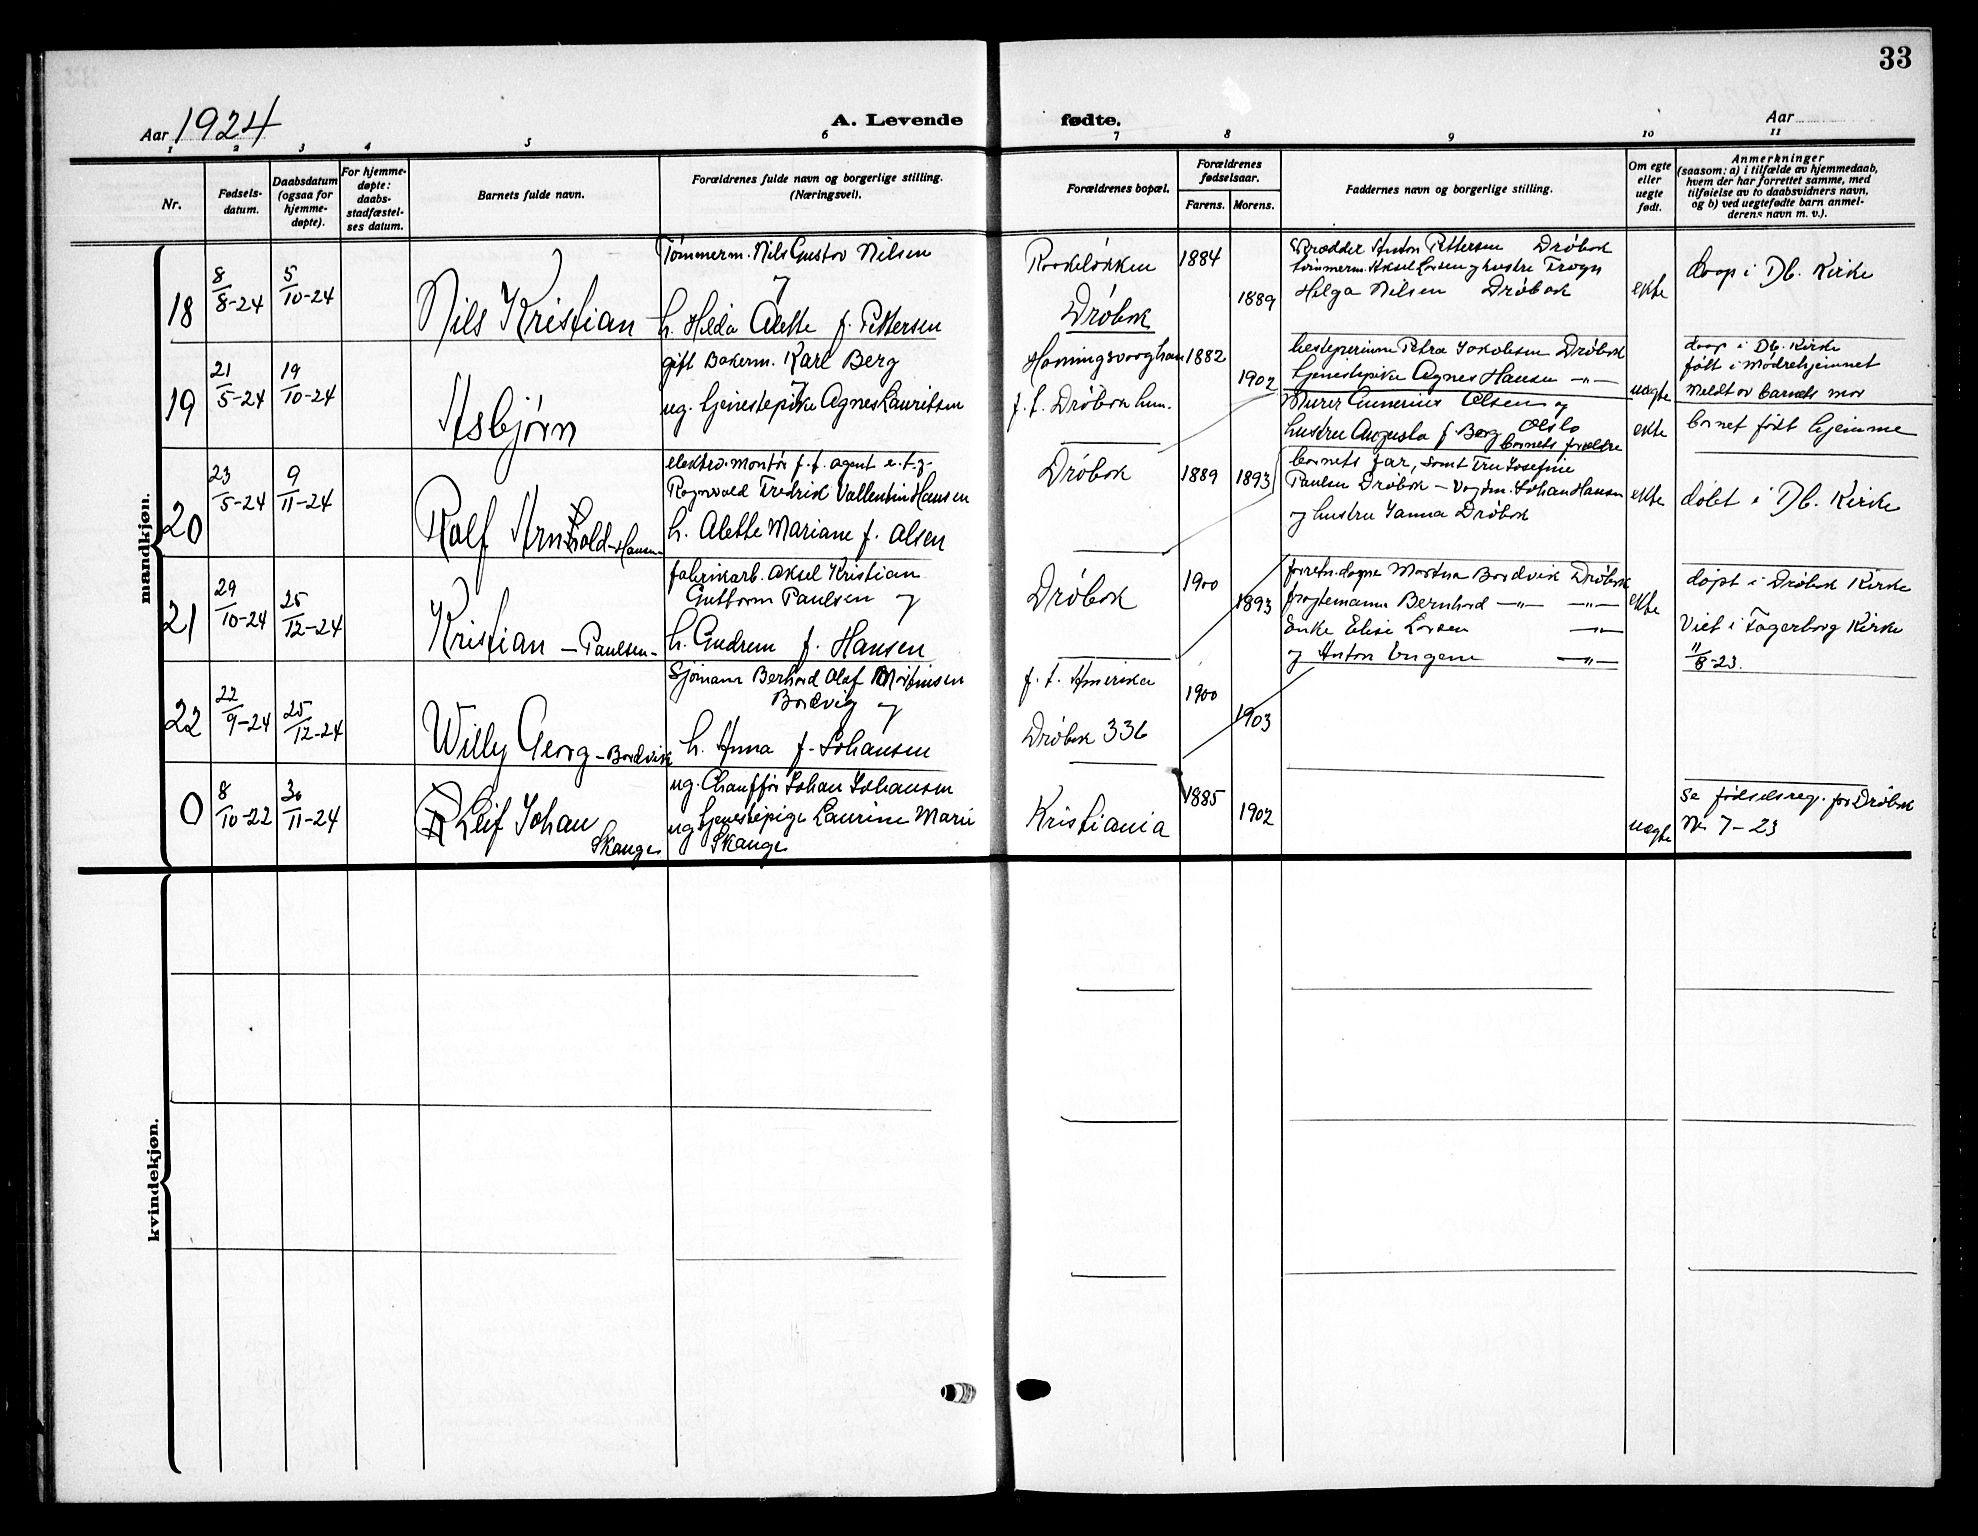 33
Aar 1924
A. Levende fødte.
Aar
1 2 3 4 5 6 7 8 9 10 11
Nr.
Fødsels-
datum.
Daabsdatum
(ogsaa for
hjemme-
døpte).
For hjemme-
døpte:
daabs-
stadfæstel-
ses datum.
Barnets fulde navn.
Forældrenes fulde navn og borgerlige stilling.
(Næringsvei).
Forældrenes bopæl.
Forældrenes
fødselsaar.
Farens. Morens.
Faddernes navn og borgerlige stilling.
Om egte
eller
uegte
født.
Anmerkninger
(saasom: a) i tilfælde av hjemmedaab,
hvem der har forrettet samme, med
tilføielse av to daabsvidners navn,
og b) ved uegtefødte barn anmel-
derens navn m. v.).
mandkjøn.
18
8/8-24
5/10-24
Nils Kristian
Tømmerm. Nils Gustav Nilsen
og
h. Hilda Alette f. Pettersen
Drøbak
1884
1889
Anton Pettersen Drøbak
tømmerm. Aksel Larsen og hustru Frogn
Helga Nilsen Drøbak
ekte
daap i Db. Kirke
19
21/5-24
19/10-24
Asbjørn
gift Bakerm. Karl Berg
og
ug. tjenestepike Agnes Lauritsen
f. t. Drøbak
1882
1902
Petra Jakobsen Drøbak
tjenestepike Agnes Hansen —"—
uegte
daap i Db. Kirke
født i Mødrehjemmet
Meldt av barnets mor
Murer Gunerius Olsen og
hustru Augusta f. Berg Oslo
barnets forældre
ekte
barnet født hjemme
20
23/5-24
9/11-24
Ralf Arnhold - Hansen
elektro. montør f. t. agent e. t. z.
Ragnvald Fredrik Vallentin Hansen
h. Alette Mariane f. Olsen
Drøbak
1889
1893
barnets far, samt Fru Josefine
Paulsen Drøbak — Johan Hansen
og hustru Janna Drøbak
ekte
døbt i Db. Kirke
21
29/10-24
25/12-24
Kristian — Paulsen -
fabrikarb. Aksel Kristian
Guttorm Paulsen og
h. Gudrun f. Hansen
Drøbak
1900
1893
Martha Bordvik Drøbak
Bernhard —"— —"—
Enke Elise Larsen —"—
og Anton Eugene —"—
ekte
døpt i Drøbak Kirke
Viet i Fagerborg Kirke
11/8-23.
22
22/9-24
25/12-24
Willy Georg - Bordvik
Sjømann Berhard Olaf Martinsen
Bordvig og
h. Anna f. Johansen
f. t. Amerika
Drøbak 336
1900
1903
0
8/10-22
30/11-24
Leif Johan
Skauge
ug. Chauffør Johan Johansen
ug tjenestepige Laurine Marie
Skauge
Kristiania
1885
1902
uegte
Se fødselsreg. for Drøbak
No 7-23
kvindekjøn.